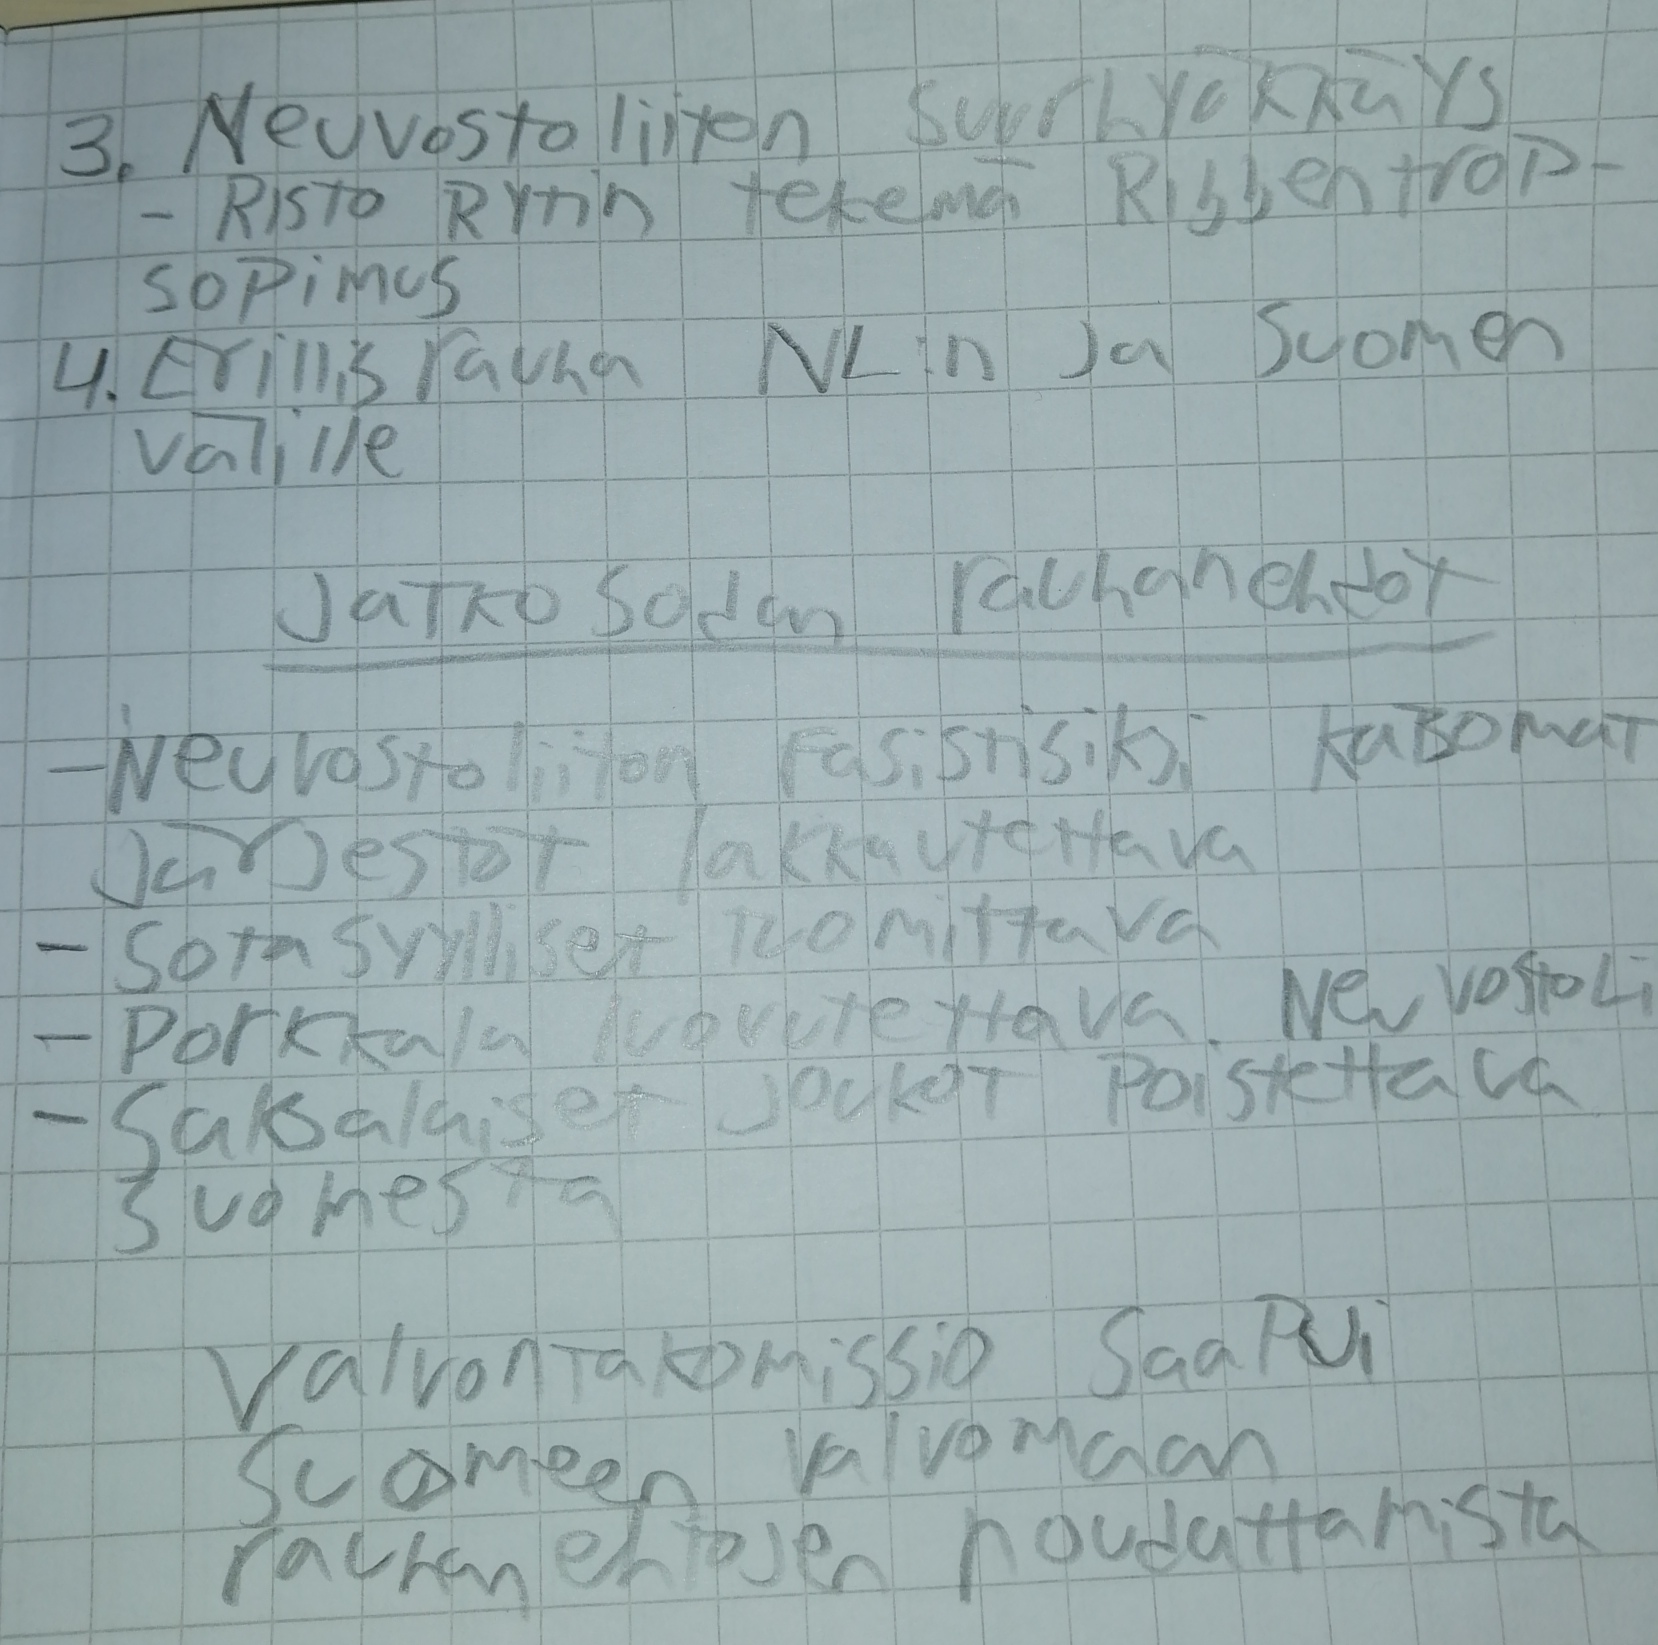 3. Neuvostoliiton suurhyökkäys
- Risto Rytin tekemä Ribbentrop-
sopimus
4. Erillisrauha NL:n ja Suomen
välille
Jatkosodan rauhanehdot
- Neuvostoliiton Fasistisiksi katsomat
järjestöt lakkautettava
- Sotasyylliset tuomittava
- Porkkala luovutettava. Neuvostoli
- Saksalaiset joukot Poistettava
Suomesta
Valvontakomissio saapui
Suomeen valvomaan
rauhanehtojen noudattamista